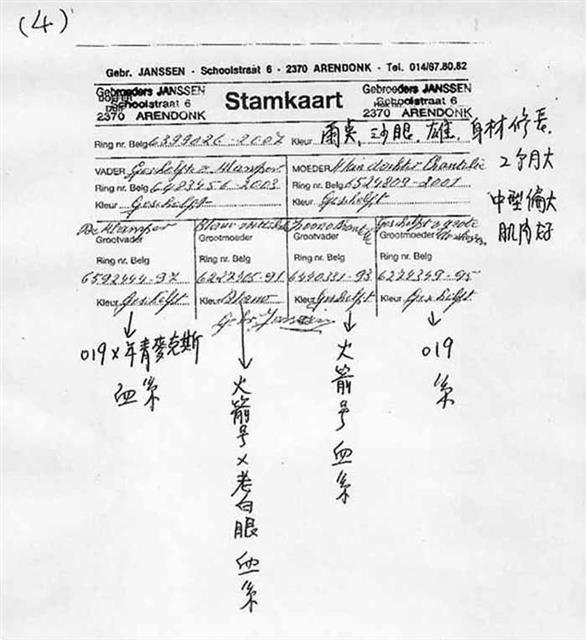 (4)
Gebr. JANSSEN - Schoolstraat 6 - 2370 ARENDONK - Tel. 014/67.80.82
Gebroeders JANSSEN
Schoolstraat 6
2370 ARENDONK
Stamkaart
Gebroeders JANSSEN
Schoolstraat 6
2370 ARENDONK
Ring nr. Belg 6399026-2007 Kleur 雨点, 沙眼, 雄, 身材修长
2个月大
中型偏大
肌肉好
VADER Geschelpt
Ring nr. Belg 6483456-2003
Kleur Geschelpt
MOEDER
Ring nr. Belg 6524809-2001
Kleur Geschelpt
Grootvader
Ring nr. Belg
6592444-97
Kleur Geschelpt
Grootmoeder
Ring nr. Belg
6247405-91
Kleur Blauw
Grootvader
Ring nr. Belg
6440331-93
Kleur Geschelpt
Grootmoeder
Ring nr. Belg
6224349-95
Kleur Geschelpt
Gebr. Janssen
019 x 年青麥克斯
血系
火箭号 x 老白眼 血系
火箭号 血系
019
系